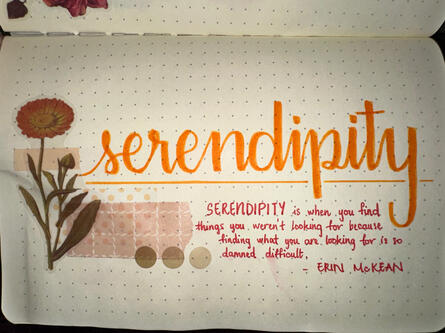 serendipity
SERENDIPITY is when you find
things you weren't looking for because
finding what you are looking for is so
damned difficult.
- ERIN McKEAN